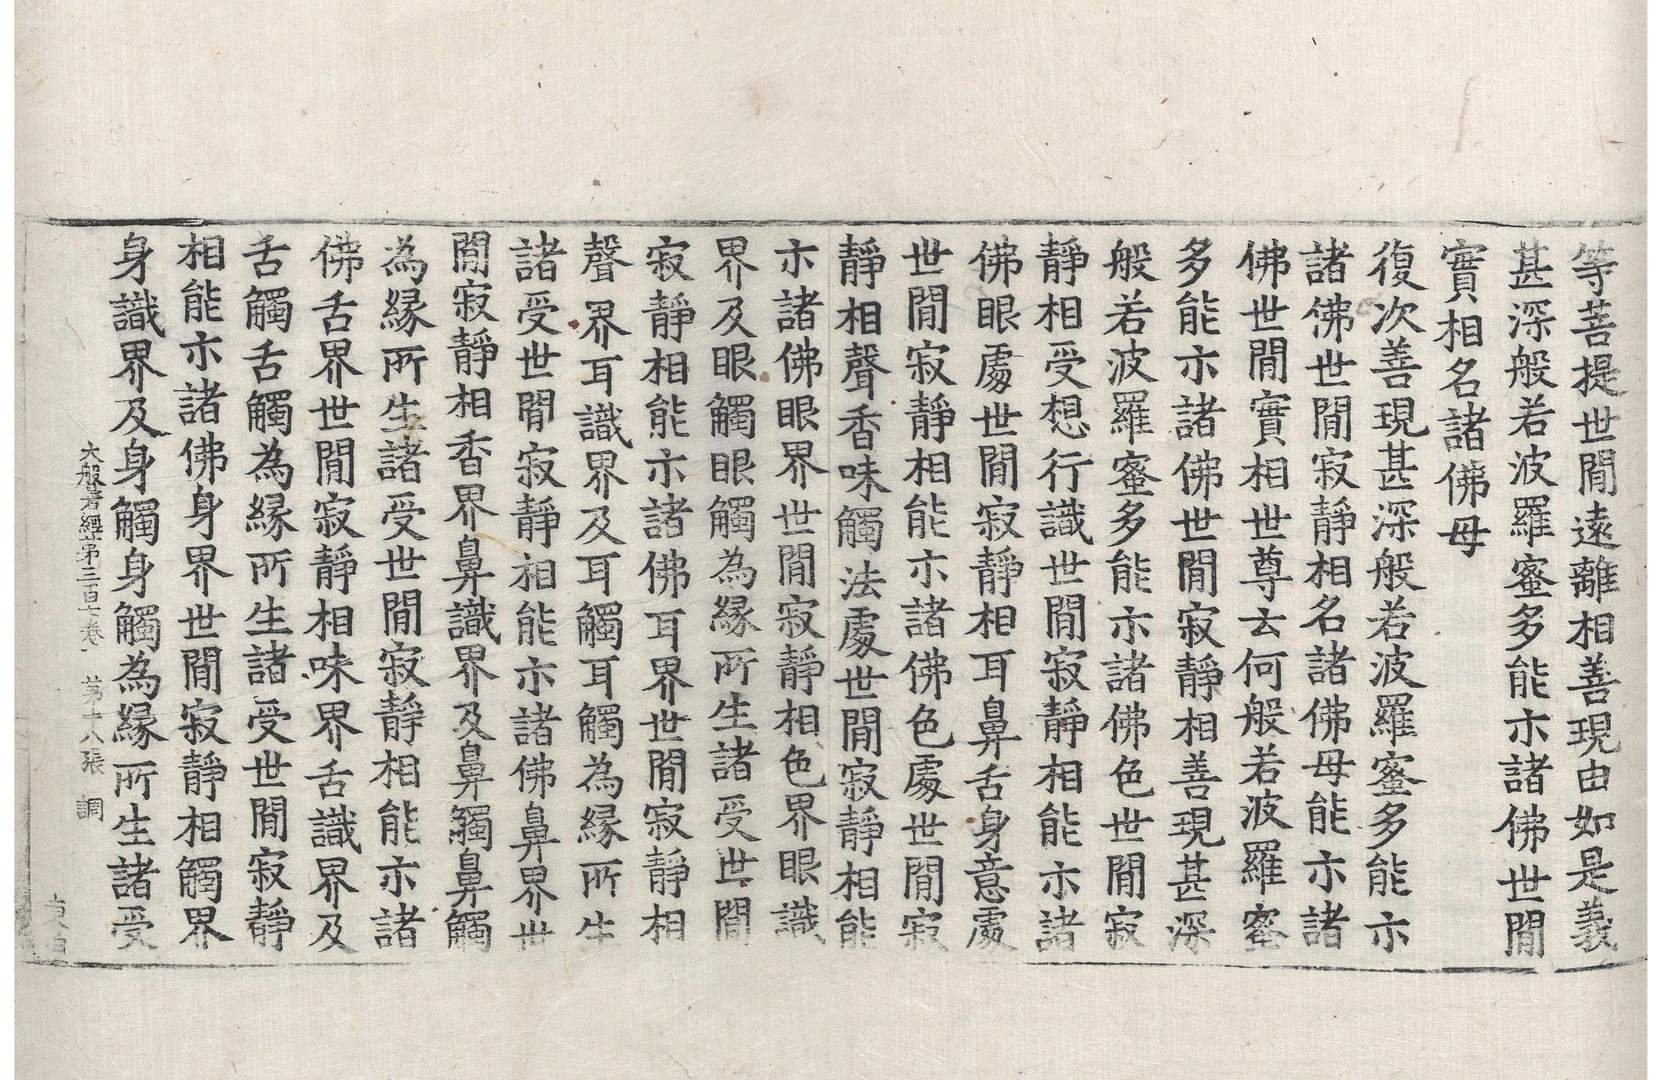 等菩提世閒遠離相善現由如是義
甚深般若波羅蜜多能示諸佛世閒
實相名諸佛母
復次善現甚深般若波羅蜜多能示
諸佛世閒寂靜相名諸佛母能示諸
佛世閒實相世尊云何般若波羅蜜
多能示諸佛世閒寂靜相善現甚深
般若波羅蜜多能示諸佛色世閒寂
靜相受想行識世閒寂靜相能示諸
佛眼處世閒寂靜相耳鼻舌身意處
世閒寂靜相能示諸佛色處世閒寂
靜相聲香味觸法處世閒寂靜相能
示諸佛眼界世閒寂靜相色界眼識
界及眼觸眼觸為緣所生諸受世閒
寂靜相能示諸佛耳界世閒寂靜相
聲界耳識界及耳觸耳觸為緣所生
諸受世閒寂靜相能示諸佛鼻界世
閒寂靜相香界鼻識界及鼻觸鼻觸
為緣所生諸受世閒寂靜相能示諸
佛舌界世閒寂靜相味界舌識界及
舌觸舌觸為緣所生諸受世閒寂靜
相能示諸佛身界世閒寂靜相觸界
身識界及身觸身觸為緣所生諸受
大般若經第三百六卷 第十八張 調